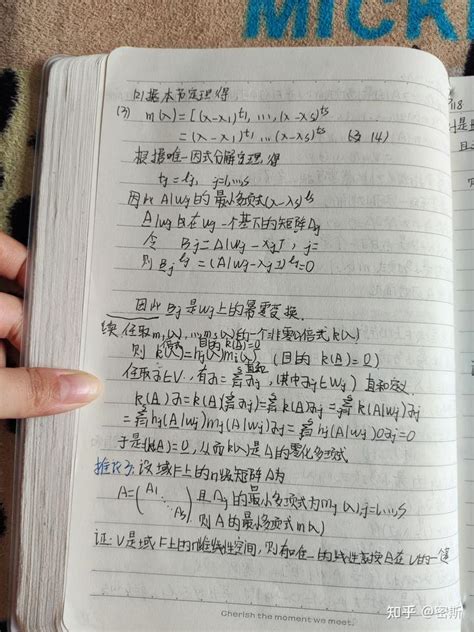 MICK
根据本节定理得
(3) m(λ) = [(λ-λ₁)^t₁, ..., (λ-λs)^ts
= (λ-λ₁)^t₁ ... (λ-λs)^ts (14)
根据唯一因式分解定理,得
tj = lj, j=1,...,s
因此 A|Wj 的最小多项式(λ-λj)^lj
A|Wj 在 Wj 一个基下的矩阵 Aj
令 Bj = A|Wj - λjI, j=
则 Bj^lj = (A|Wj - λjI)^lj = 0
因此 Bj 是 Wj 上的幂零变换.
任取 m₁(λ), ..., ms(λ) 的一个非零公倍式 k(λ)
目的 k(A)=0
则 k(λ) = hj(λ)mj(λ) (目的 k(A)=0)
任取 α∈V, 有 α = Σαj, (其中 αj∈Wj) 直和定义.
k(A)α = k(A)(Σαj) = Σk(A)αj = Σk(A|Wj)αj
= Σhj(A|Wj)mj(A|Wj)αj = Σhj(A|Wj)0αj = 0
于是 k(A)=0, 从而 k(λ) 是 A 的零化多项式
推论3: 设域F上的n级矩阵A为
A = (A₁ ⋱ As) 且 Aj 的最小多项式为 mj(λ), j=1,...,s
则 A 的最小多项式 m(λ)
证: V是域F上的n维线性空间, 则存在唯一的线性变换A在V的一个基
Cherish the moment we meet.
知乎 @密斯